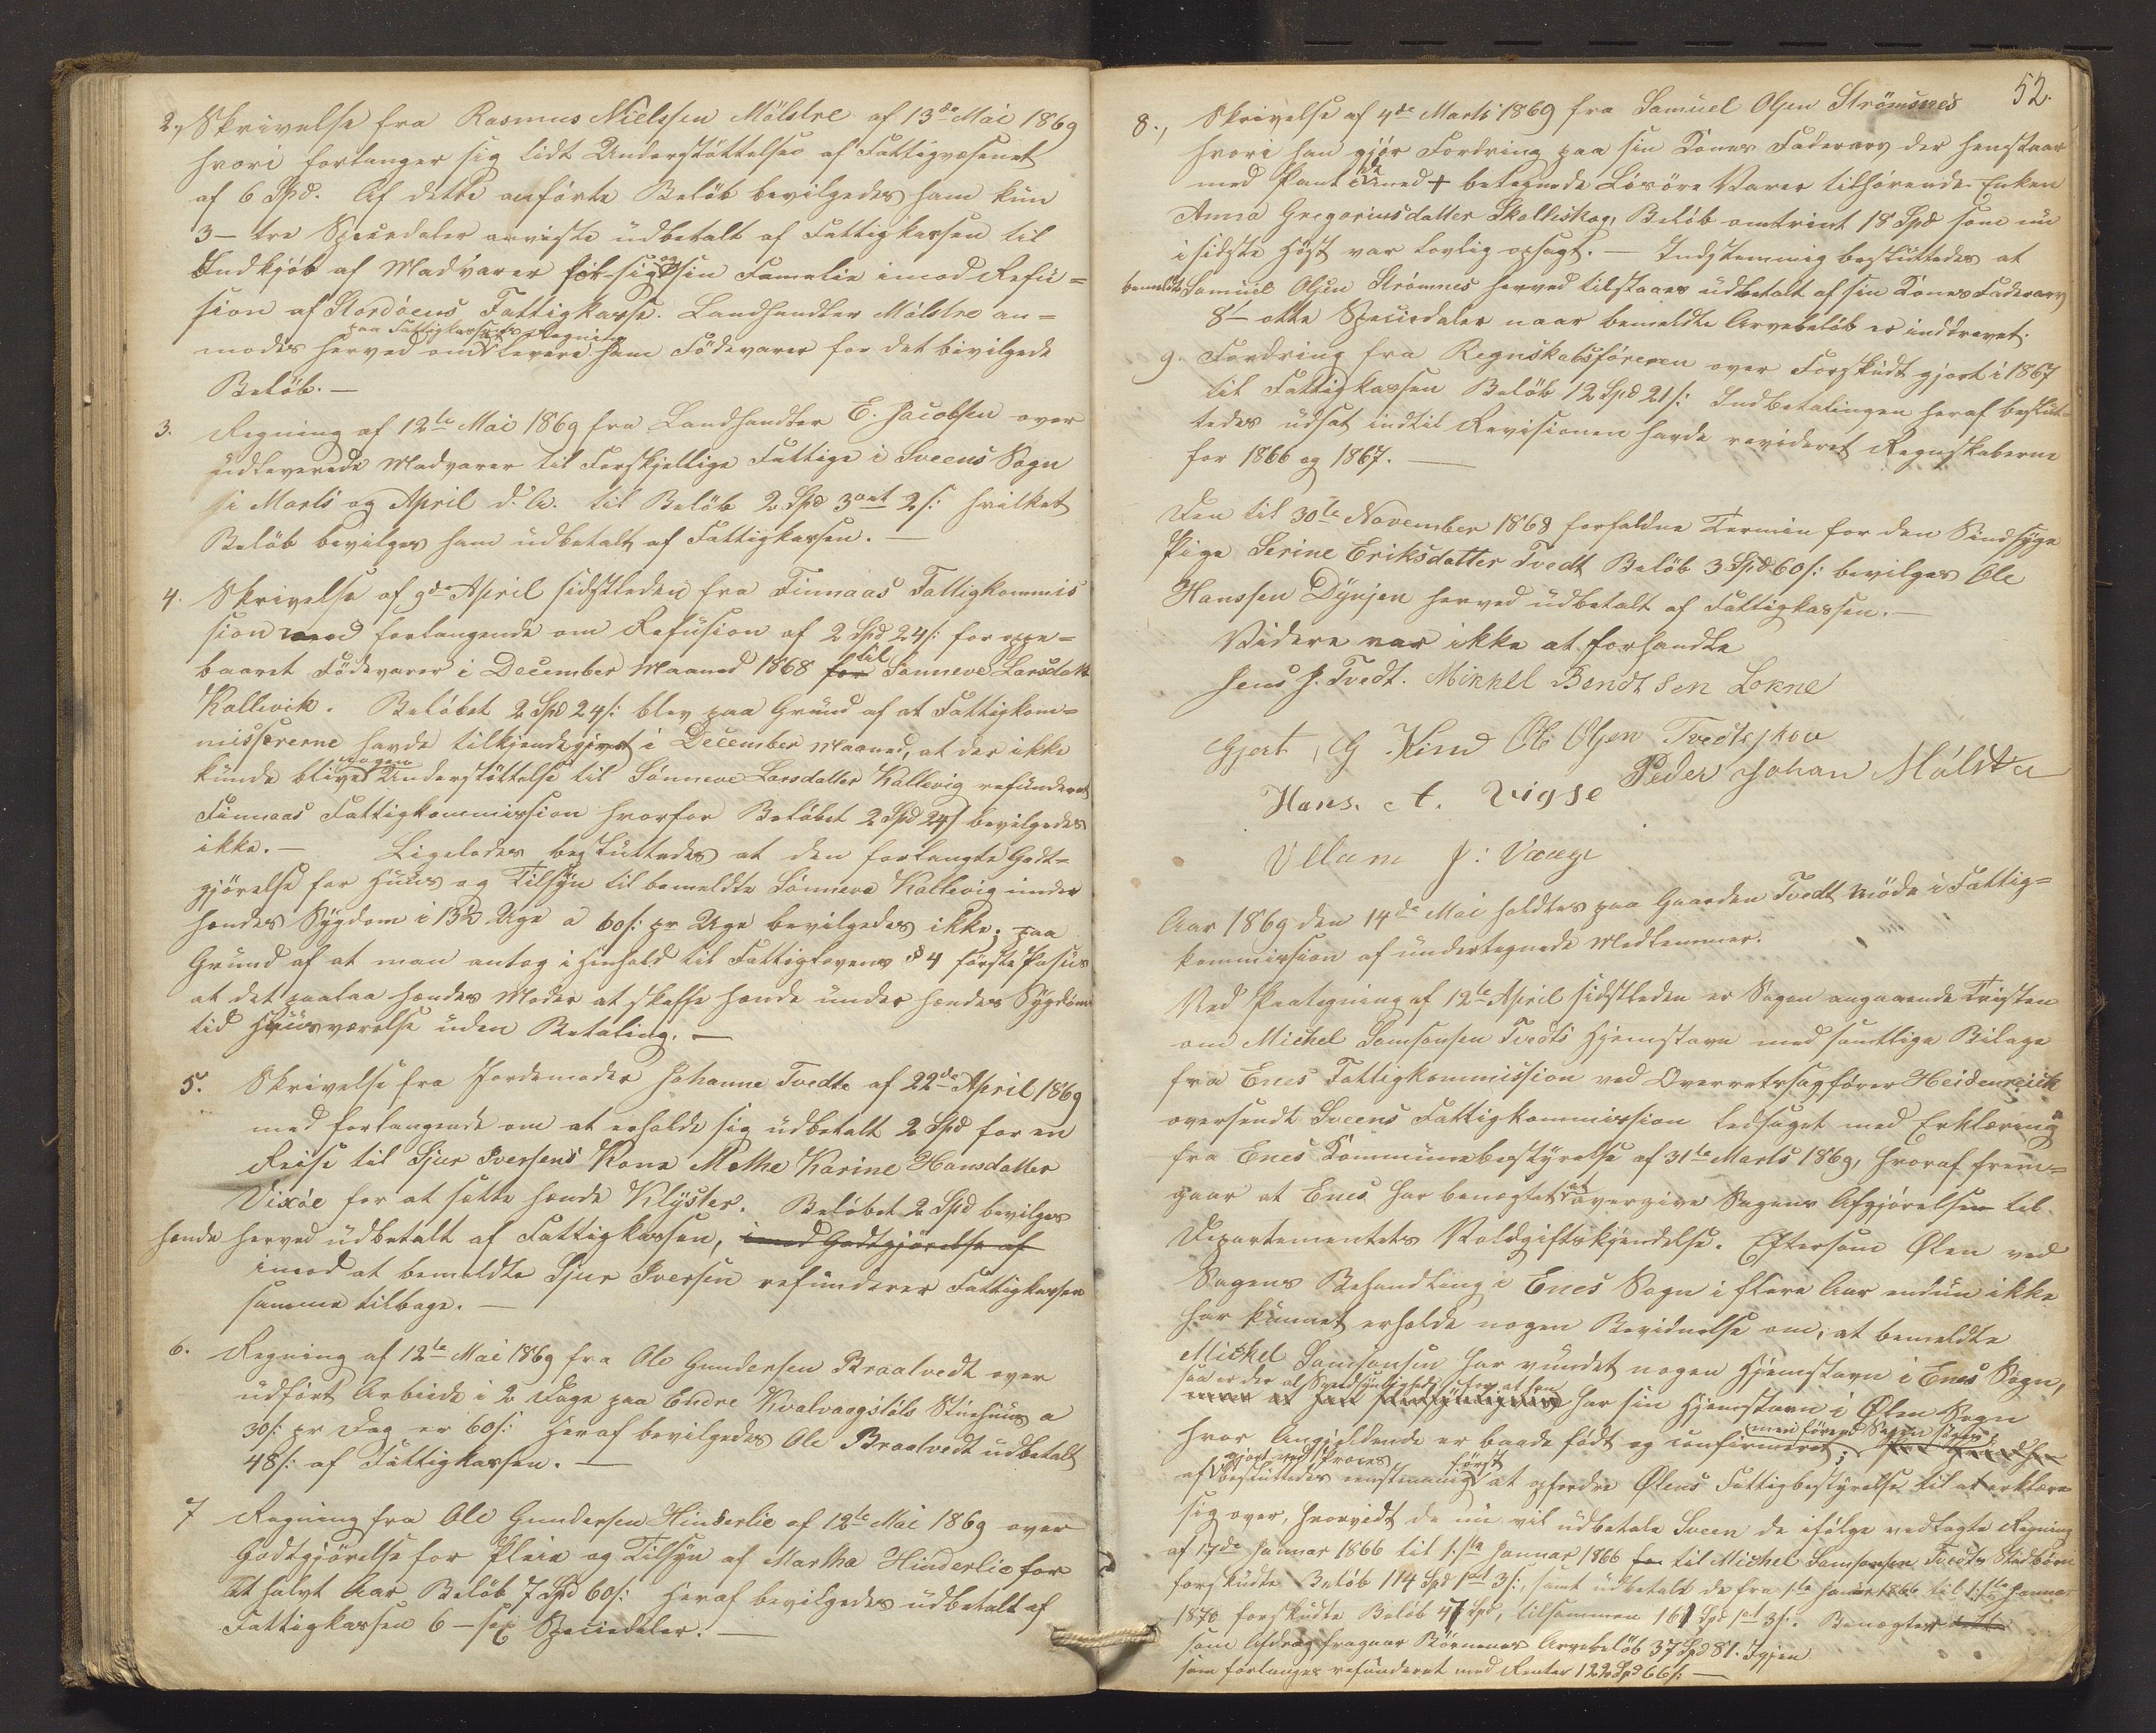 2., Skrivelse fra Rasmus Nielssen Mölstre af 13de Mai 1869
hvori forlanger sig lidt Understöttelse af Fattigvæsenet
af 6 Spd. Af dette anförte Belöb bevilgedes ham kun
3 – tre Speciedaler anviste udbetalt af Fattigkassen til
Indkjöb af Madvarer for sig og sin Famelie imod Refu=
sion af Stordöens Fattigkasse. Landhandler Mölstre an=
paa Fattigkassens Regning
modes herved om at levere ham Födevarer for det bevilgede
Belöb. –
3. Regning af 12te Mai 1869 fra Landhandler E. Jacobsen over
udleverede Madvarer til Forskjellige Fattige i Sveens Sogn
i Marts og April d. A. til Belöb 2 Spd 3 ort 2 s: hvilket
Belöb bevilges ham udbetalt af Fattigkassen. –
4. Skrivelse af 9de April sidstleden fra Finnaas Fattigkommis
sion med forlangende om Refusion af 2 Spd 24 s: for oppe=
baaret Födevarer i December Maaned 1868 for til Sönneve Larsdatt
Kallevik. Belöbet 2 Spd 24 s: blev paa Grund af at Fattigkom=
missererne havde tilkjendegivet i December Maaned, at der ikke
kunde blive nogen Understöttelse til Sönneve Larsdatter Kallevig refunderet
Finnaas Fattigkommission hvorfor Belöbet 2 Spd 24 s bevilgedes
ikke. – Ligeledes besluttedes at den forlangte Godt=
gjörelse for Huus og Tilsyn til bemeldte Sönneva Kallevig under
hendes Sygdom i 13½ Uge a 60 s: pr Uge bevilgedes ikke; paa
Grund af at man antog i Henhold til Fattiglovens § 4 förste Passus
at det paalaa hendes Moder at skaffe hende under hendes Sygdoms
tid Huusværelse uden Betaling. –
5. Skrivelse fra Jordemoder Johanne Tvedte af 22de April 1869
med forlangende om at erholde sig udbetalt 2 Spd for en
Reise til Sjur Iversens Kone Methe Karine Hansdatter
Vixöe for at sætte hende Klyster. Belöbet 2 Spd bevilges
hende herved udbetalt af Fattigkassen, imod Godtgjörelse af
imod at bemeldte Sjur Iversen refunderer Fattigkassen
samme tilbage. –
6. Regning af 12te Mai 1869 fra Ole Gundersen Braatvedt over
udfört Arbeide i 2 Dage paa Endre Kvalvaagsföls Stuehuus a
30 s: pr Dag er 60 s: Heraf bevilgedes Ole Braatvedt udbetalt
48 s: af Fattigkassen. –
7 Regning fra Ole Gundersen Hinderlie af 12te Mai 1869 over
Godtgjörelse for Pleie og Tilsyn af Martha Hinderlie for
et halvt Aar Belöb 7 Spd 60 s: Heraf bevilgedes udbetalt af
Fattigkassen 6 – sex Speciedaler. –
52.
8., Skrivelse af 4de Marts 1869 fra Samuel Olsen Strömsnes
hvori han gjör Fordring paa sin Kones Faderarv der henstaar
med Pant i de med + betegnede Lösöre Varer tilhörende Enken
Anna Gregoriusdatter Skolleskog, Belöb omtrint 18 Spd som nu
i sidste Höst var lovlig opsagt. – Indstemmig besluttedes at
bemeldte Samuel Olsen Strömnes herved tilstaaes udbetalt af sin Kones Faderarv
8 – otte Speciedaler naar bemeldte Arvebelöb er inddrevet.
9. Fordring fra Regnskabsföreren over Forskudt gjort i 1867
til Fattigkassen Belöb 12 Spd 21 s: Indbetalingen heraf beslut=
tedes udsat indtil Revisionen havde revideret Regnskaberne
for 1866 og 1867. –
Den til 30te November 1868 forfaldne Termin for den Sindsyge
Pige Serine Eriksdatter Tvedt Belöb 3 Spd 60 s: bevilges Ole
Hanssen Dynjen herved udbetalt af Fattigkassen. –
Videre var ikke at forhandle
Jens J. Tvedt. Mikkel Bendtsen Lokne
Gjert, G Kinn Ole Olsen Tvedtskov
Hans. A. Vigse Peder Johan Mölstre
Villam J: Vaage
Aar 1869 den 14de Mai holdtes paa Gaarden Tvedt Möde i Fattig=
kommission af undertegnede Medlemmer.
Ved Paategning af 12te April sidstleden er Sagen angaaende Tvisten
om Michel Samsonsen Tvedts Hjemstavn med samtlige Bilage
fra Enes Fattigkommission ved Overretssagförer Heidenreich
oversendt Sveens Fattigkommission ledsaget med Erklæring
fra Enes Kommunebestyrelse af 31te Marts 1869, hvoraf frem=
gaar at Enes har benegtet at overgive Sagens Afgjörelsen til
Departementets Voldgiftskjendelse. Eftersom Ølen ved
Sagens Behandling i Enes Sogn i flere Aar endnu ikke
har kunnet erholde nogen Bevidnelse om, at bemeldte
Mickel Samsonsen har vundet nogen Hjemstavn i Enes Sogn,
saa er der al Sandsynlighed for at han
har sin Hjemstavn i Ølen Sogn
hvor Angjeldende er baade födt og confirmeret; men förend Sagen
gjort ved Proces först
af besluttedes eenstemmig at opfordre Ølens Fattigbestyrelse til at erklære
sig over, hvorvidt de nu vil udbetale Sveen de ifölge vedlagte Regning
af 17de Januar 1866 til 1ste Januar 1866 for til Michel Samsonsen Tvedts Stedbörn
forskudte Belöb 114 Spd 1 ort 3 s:, samt udbetalt de fra 1ste Januar 1866 til 1ste Januar
1870 forskudte Belöb 47 Spd, tilsammen 161 Spd 1 ort 3 s:. Benegtes dette
som Afdrag fragaar Börnenes Arvebelöb 37 Spd 81. Igjen
som forlanges refunderet med Renter 122 Spd 66 s: –